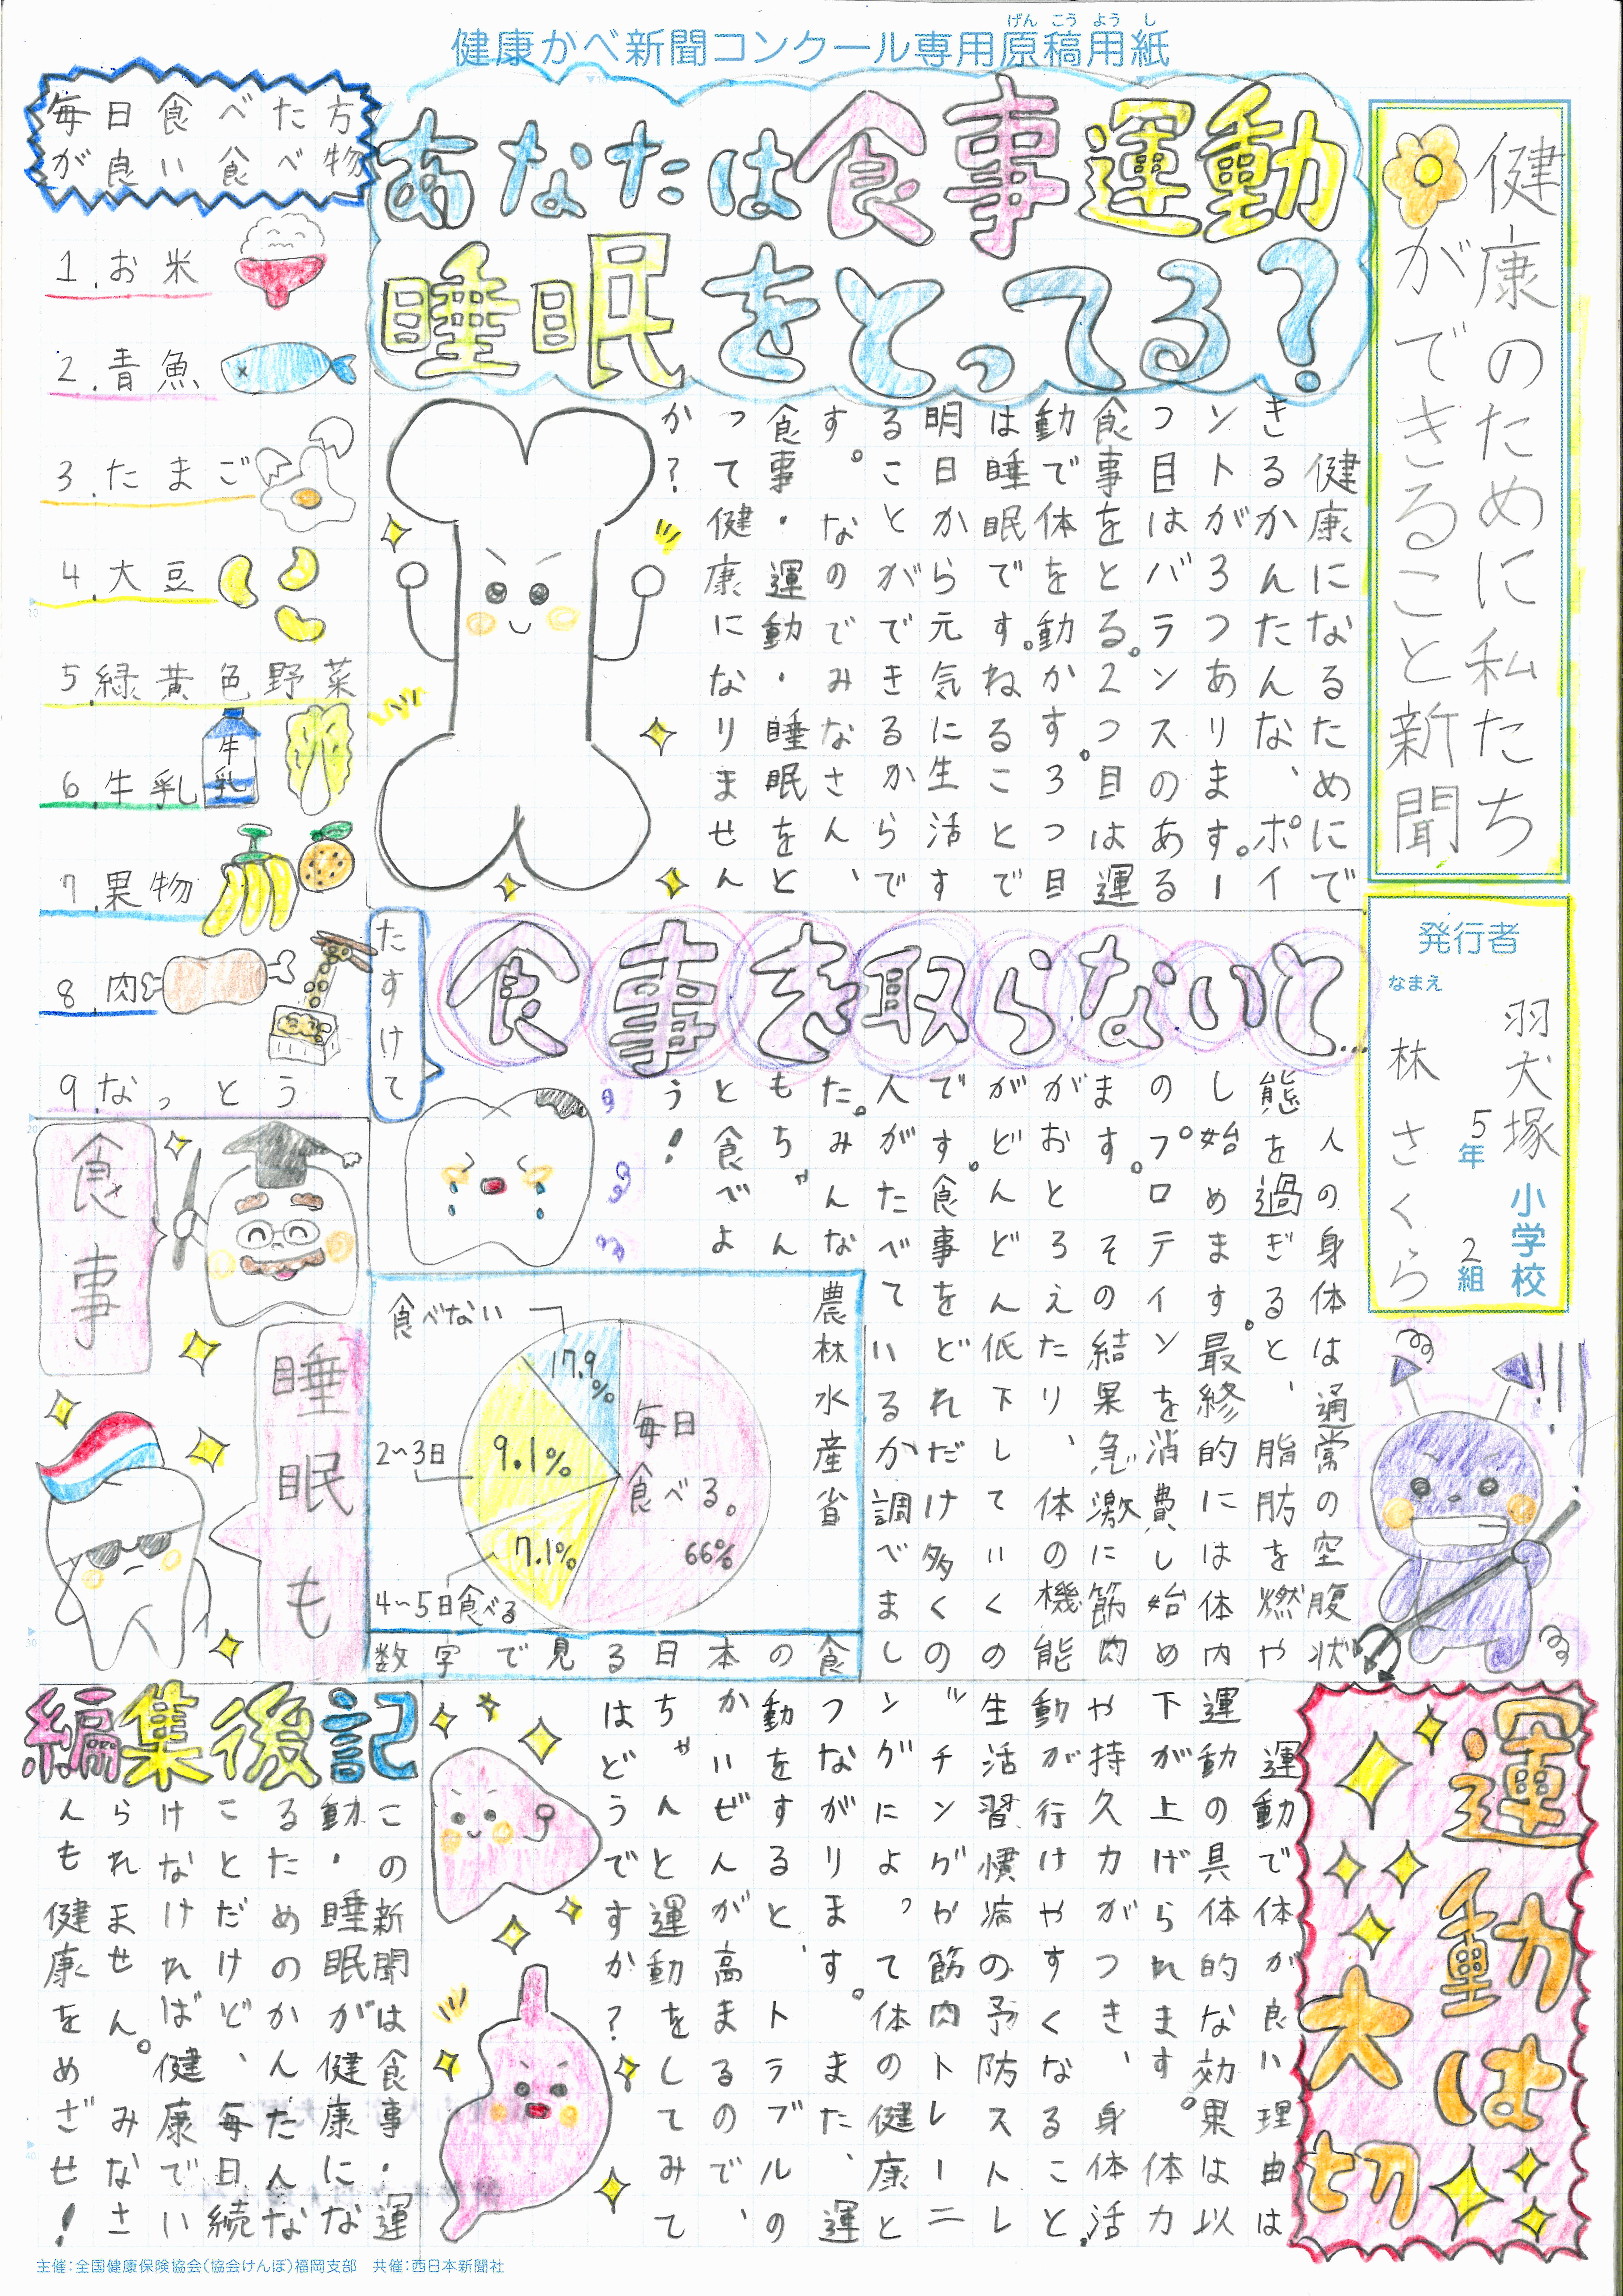 健康かべ新聞コンクール専用原稿用紙
げんこうようし
健康のために私たち
ができること新聞
発行者
なまえ
羽犬塚小学校
5年2組
林さくら
あなたは食事運動
睡眠をとってる?
健康になるためにで
きるかんたんな、ポイ
ントが3つあります。1
つ目はバランスのある
食事をとる。2つ目は運
動で体を動かす。3つ目
は睡眠です。ねることで
明日から元気に生活す
ることができるからで
す。なのでみなさん、
食事・運動・睡眠をと
って健康になりません
か?
毎日食べた方
が良い食べ物
1.お米
2.青魚
3.たまご
4.大豆
5緑黄色野菜
6.牛乳
牛乳
7.果物
8.肉
9.なっとう
食事を取らないと…
たすけて
人の身体は通常の空腹状
態を過ぎると、脂肪を燃や
し始めます。最終的には体内
のプロテインを消費し始め
ます。その結果急激に筋肉
がおとろえたり、体の機能
がどんどん低下していくの
です。食事をどれだけ多くの
人がたべているか調べまし
た。みんな
もちゃん
と食べよ
う!
農林水産省
食べない
17.9%
2〜3日
9.1%
4〜5日食べる
7.1%
毎日
食べる。
66%
数字で見る日本の食
食事
睡眠も
運動は
大切
運動で体が良い理由は
運動の具体的な効果は以
下が上げられます。体力
や持久力がつき、身体活
動が行けやすくなること。
生活習慣病の予防ストレ
ッチングか筋肉トレーニ
ングによって体の健康と
つながります。また、運
動をすると、トラブルの
かいぜんが高まるので、
ちゃんと運動をしてみて
はどうですか?
編集後記
この新聞は食事・運
動・睡眠が健康にな
るためのかんたんな
ことだけど、毎日続
けなければ健康でい
られません。みなさ
んも健康をめざせ!
主催:全国健康保険協会(協会けんぽ)福岡支部 共催:西日本新聞社